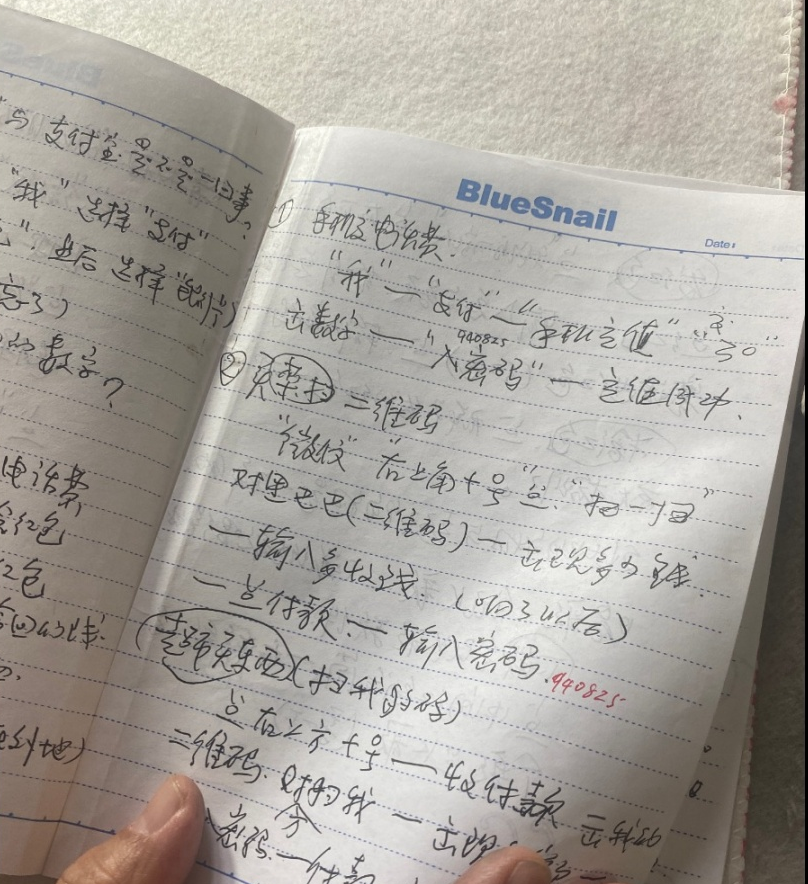 与支付宝是不是一回事?
"我"选择"支付"
"，然后选择"银行
忘了)
的数字?
电话费
红包
红包
到地)
BlueSnail
Date:
① 手机充电话费.
"我"—"支付"—"手机充值" 充"30"
去数字—"入密码"—充值成功.
940825
② 买菜扫二维码
"微信" 右上角十号点:"扫一扫"
对黑巴巴(二维码)—出现多少钱.
—输入多少钱 (OK了以后)
—点付款.—输入密码.940825
超市买东西(扫我的码)
点右上方十号—收付款 出我的
二维码. 对的我—出现
入密码.—付